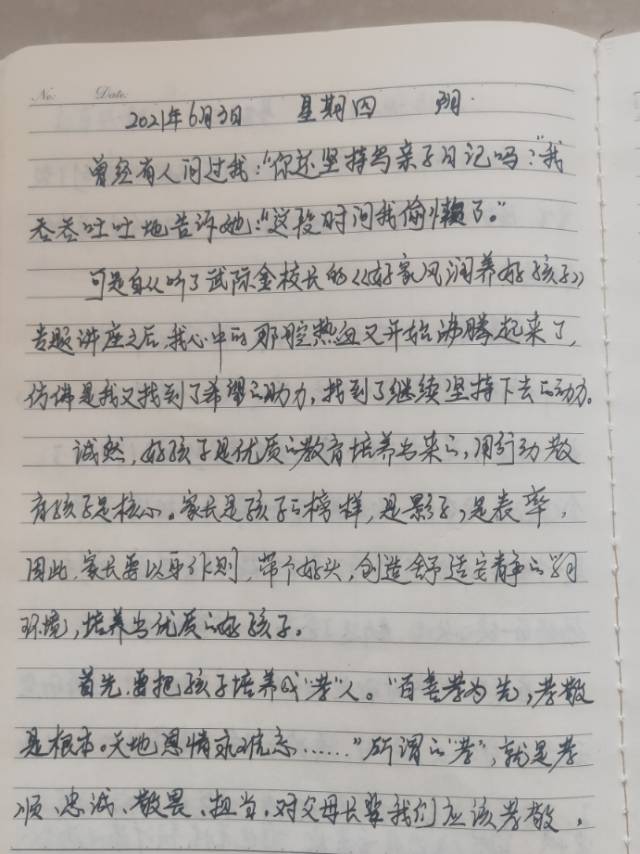 No:    Date:
2021年6月3日 星期四 阴
曾经有人问过我:“你还坚持写亲子日记吗?”我
吞吞吐吐地告诉她:“这段时间我偷懒了。”
可是自从听了武际金校长的《好家风润养好孩子》
专题讲座之后,我心中的那腔热血又开始沸腾起来了,
仿佛是我又找到了希望的助力,找到了继续坚持下去的动力。
诚然,好孩子是优质的教育培养出来的,用行动教
育孩子是核心。家长是孩子的榜样,是影子,是表率,
因此,家长要以身作则,带个好头,创造舒适安静的学习
环境,培养出优质的好孩子。
首先,要把孩子培养成“孝”人。“百善孝为先,孝敬
是根本。天地恩情永难忘……”所谓的“孝”,就是孝
顺、忠诚、敬畏、担当。对父母长辈我们应该孝敬,